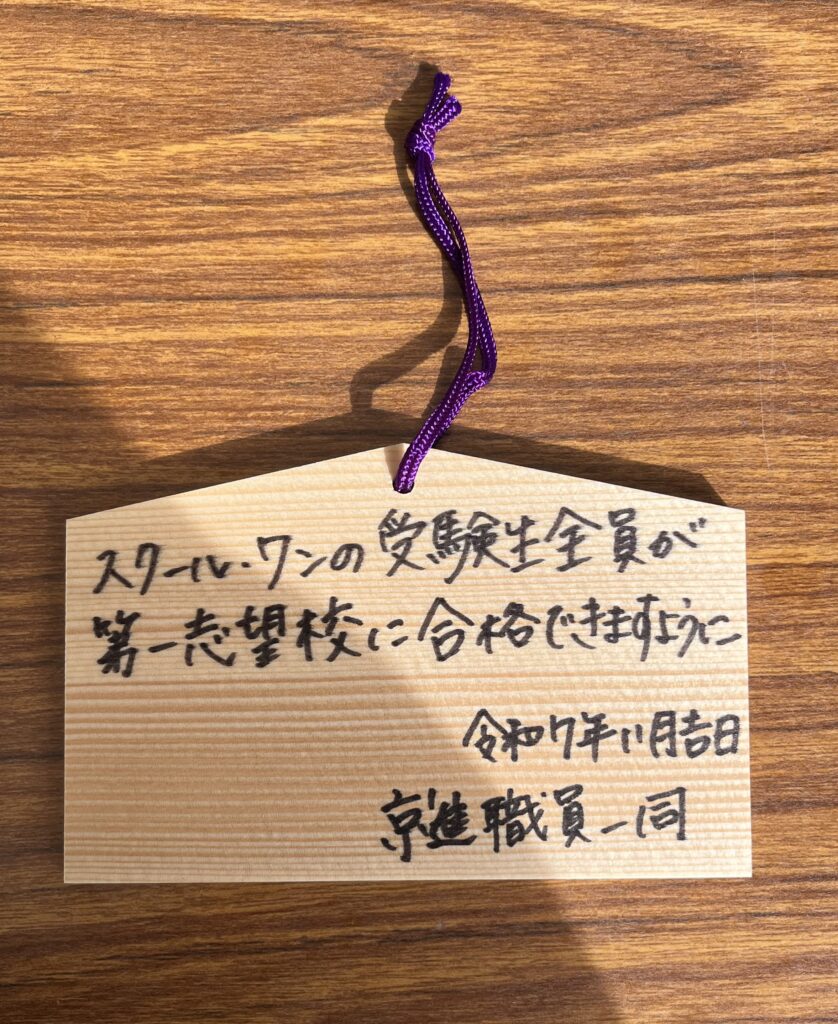 スクール・ワンの受験生全員が
第一志望校に合格できますように
令和7年11月吉日
京進職員一同